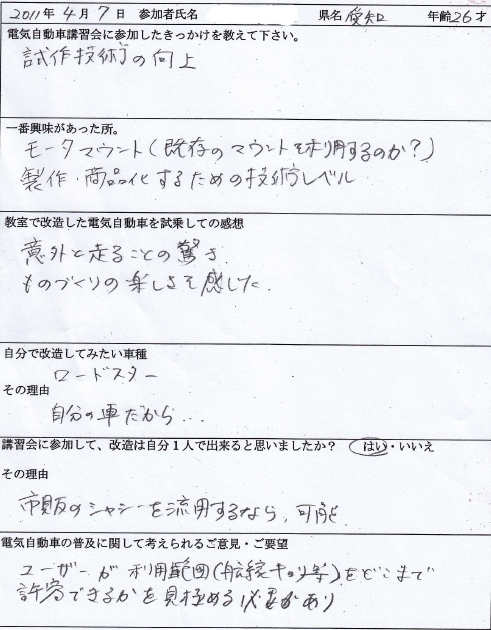 2011年 4月 7日 参加者氏名 県名 愛知 年齢26才
電気自動車講習会に参加したきっかけを教えて下さい。
試作技術の向上
一番興味があった所。
モータマウント(既存のマウントを利用するのか?)
製作・商品化するための技術レベル
教室で改造した電気自動車を試乗しての感想
意外と走ることの驚き
ものづくりの楽しさを感じた.
自分で改造してみたい車種
ロードスター
その理由
自分の車だから...
講習会に参加して、改造は自分1人で出来ると思いましたか? はい・いいえ
その理由
市販のシャシーを流用するなら, 可能
電気自動車の普及に関して考えられるご意見・ご要望
ユーザーが利用範囲(航続キョリ等)をどこまで
許容できるかを見極める必要があり